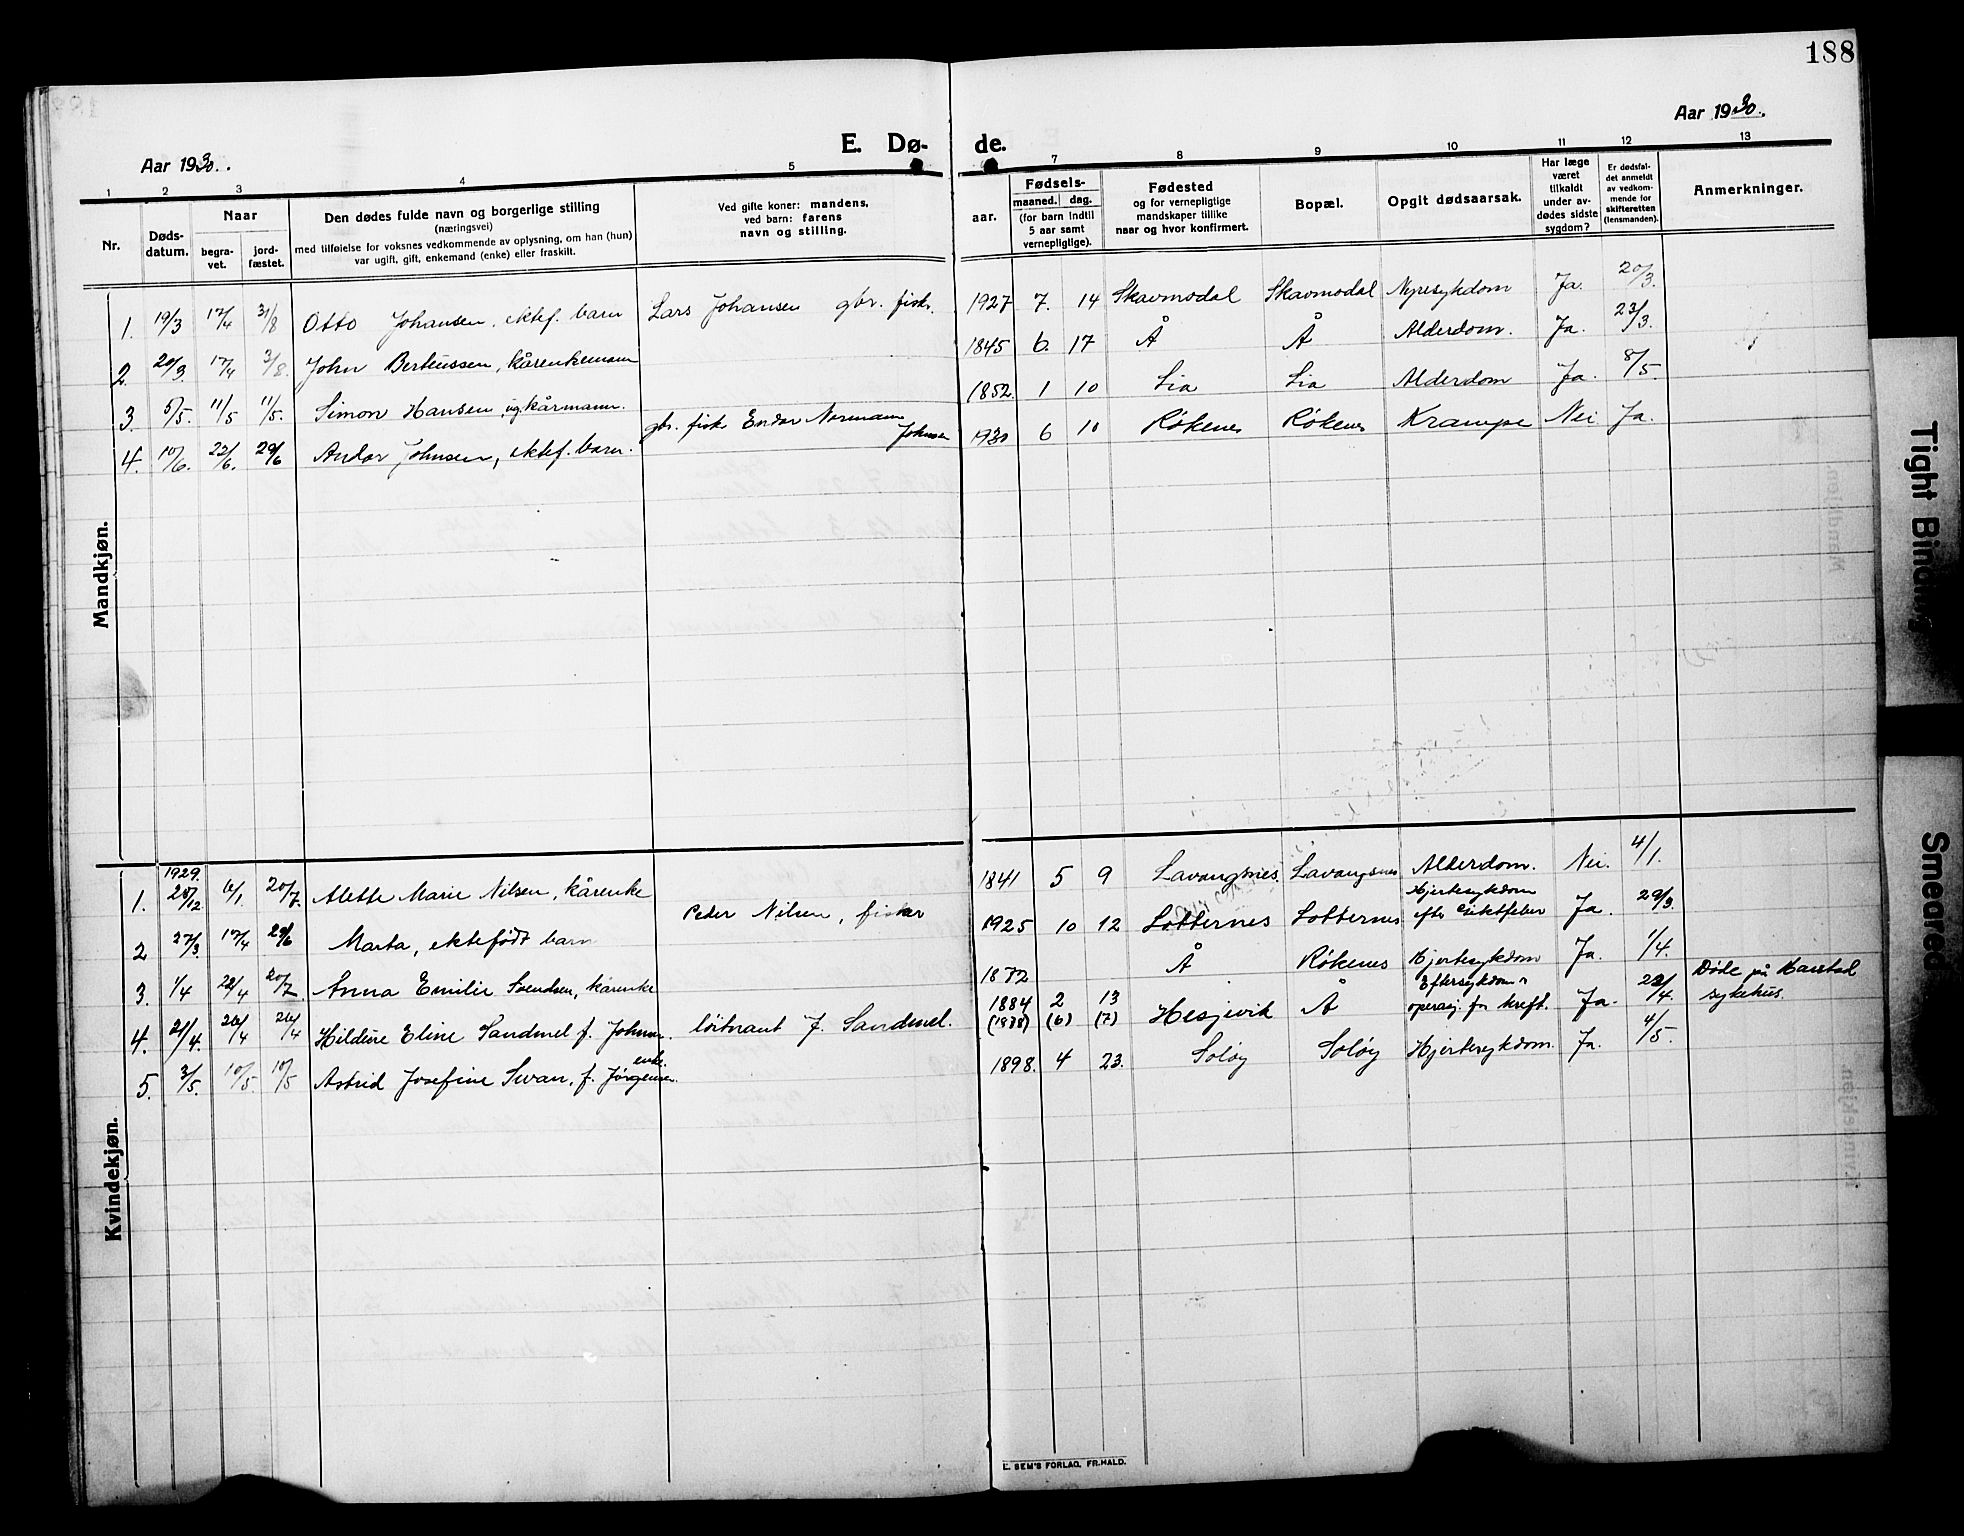 188
Aar 1930.
E. Dø-
de.
Aar 1930.
1 2 3 4 5 7 8 9 10 11 12 13
Nr.
Døds-
datum.
Naar
begra-
vet.
jord-
fæstet.
Den dødes fulde navn og borgerlige stilling
(næringsvei)
med tilføielse for voksnes vedkommende av oplysning, om han (hun)
var ugift, gift, enkemand (enke) eller fraskilt.
Ved gifte koner: mandens,
ved barn: farens
navn og stilling.
aar.
Fødsels-
maaned. dag.
(for barn indtil
5 aar samt
vernepligtige).
Fødested
og for vernepligtige
mandskaper tillike
naar og hvor konfirmert.
Bopæl.
Opgit dødsaarsak.
Har læge
været
tilkaldt
under av-
dødes sidste
sygdom?
Er dødsfal-
det anmeldt
av vedkom-
mende for
skifteretten
(lensmanden).
Anmerkninger.
Mandkjøn.
1. 19/3 17/4 31/8 Otto Johansen, ektef. barn Lars Johansen gbr. fisk. 1927 7. 14 Skavmodal Skavmodal Nyresykdom Ja. 20/3.
2. 20/3. 17/4 3/8. John Berteussen, kårenkemann 1845 6. 17 Å Å Alderdom. Ja. 23/3.
3. 5/5. 11/5 11/5. Simon Hansen, ug. kårmann. 1852 1 10 Lia Lia Alderdom Ja. 8/5.
4. 10/6. 23/6. 29/6 Andor Johnsen, ektef. barn. gbr. fisk. Endor Normann
Johnsen 1930 6 10 Røkenes Røkenes Krampe Nei Ja.
Kvindekjøn.
1929.
1. 28/12 6/1. 20/7. Alette Marie Nilsen, kårenke 1841 5 9 Lavangsnes. Lavangsnes Alderdom. Nei. 4/1.
2 27/3 17/4 29/6 Marta, ektefødt barn Peder Nilsen, fisker 1925 10 12 Sotternes Sotternes Hjertesykdom
efter Giktfeber Ja. 29/3.
3. 1/4 22/4 20/7. Anna Emilie Svendsen, kårenke 1872 Å Røkenes Hjertesykdom Ja. 1/4.
4. 21/4. 26/4 26/4 Hildine Sandmel f. Johnsen. løitnant J. Sandmel. 1884
(1888) 2
(6) 13
(7) Hesjevik Å Eftersykdom
operasj. for kreft. Ja. 22/4. Døde på Harstad
sykehus.
5. 3/5. 10/5. 10/5 Astrid Josefine Svan, f. Jørgensen. enke. 1898. 4 23. Soløy Soløy Hjertesykdom. Ja. 4/5.
E. SEM'S FORLAG, FR.HALD.
Tight Binding
Smeared